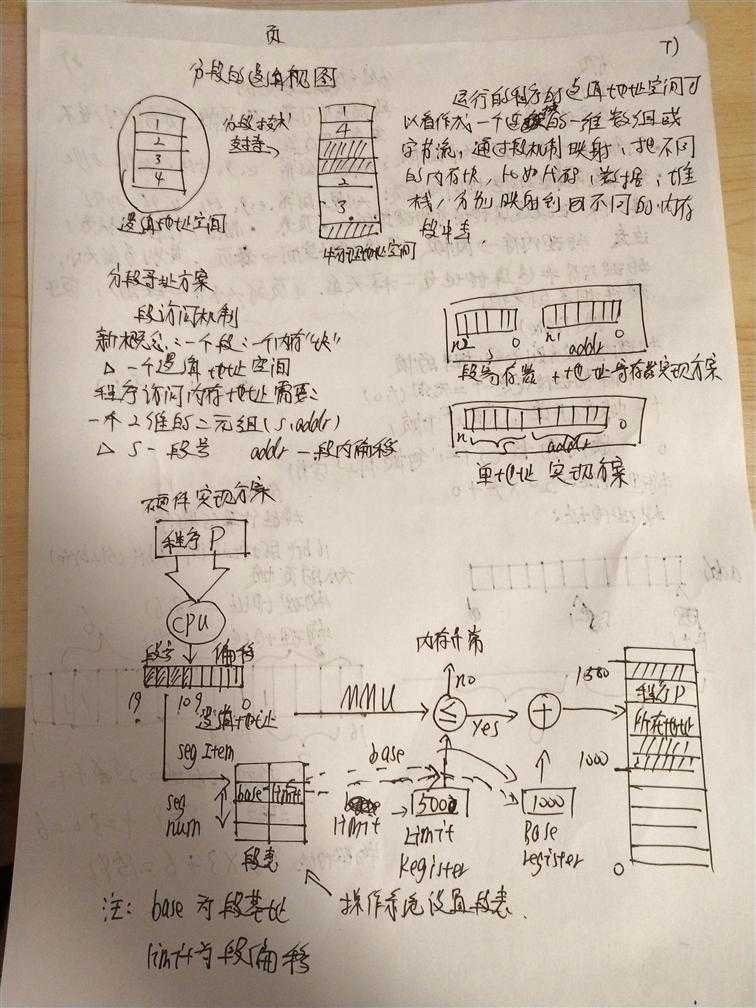 页
7)
分段的逻辑视图
1
2
3
4
逻辑地址空间
分段技术
支持
1
4
2
3
物理地址空间
运行的程序的逻辑地址空间可
以看作成一个连续的一维数组或
字节流，通过段机制映射，把不同
的内存块，比如代码，数据，堆
栈，分别映射到不同的内存
段中去，
分段寻址方案
段访问机制
新概念：一个段：一个内存"块"
△ 一个逻辑地址空间
程序访问内存地址需要：
一个2维的二元组(s,addr)
△ s - 段号 addr - 段内偏移
n2 s 0 n1 addr 0
段寄存器 + 地址寄存器实现方案
n s addr 0
单地址实现方案
硬件实现方案
程序P
CPU
段号 偏移
19 10 9 0
逻辑地址
MMU
内存异常
no
≤
yes
+
1500
程序P
所在地址
1000
0
seg Item
seg
num
base limit
段表
base
limit
500
Limit
Register
1000
Base
register
注： base 为段基址
limit为段偏移
操作系统设置段表.